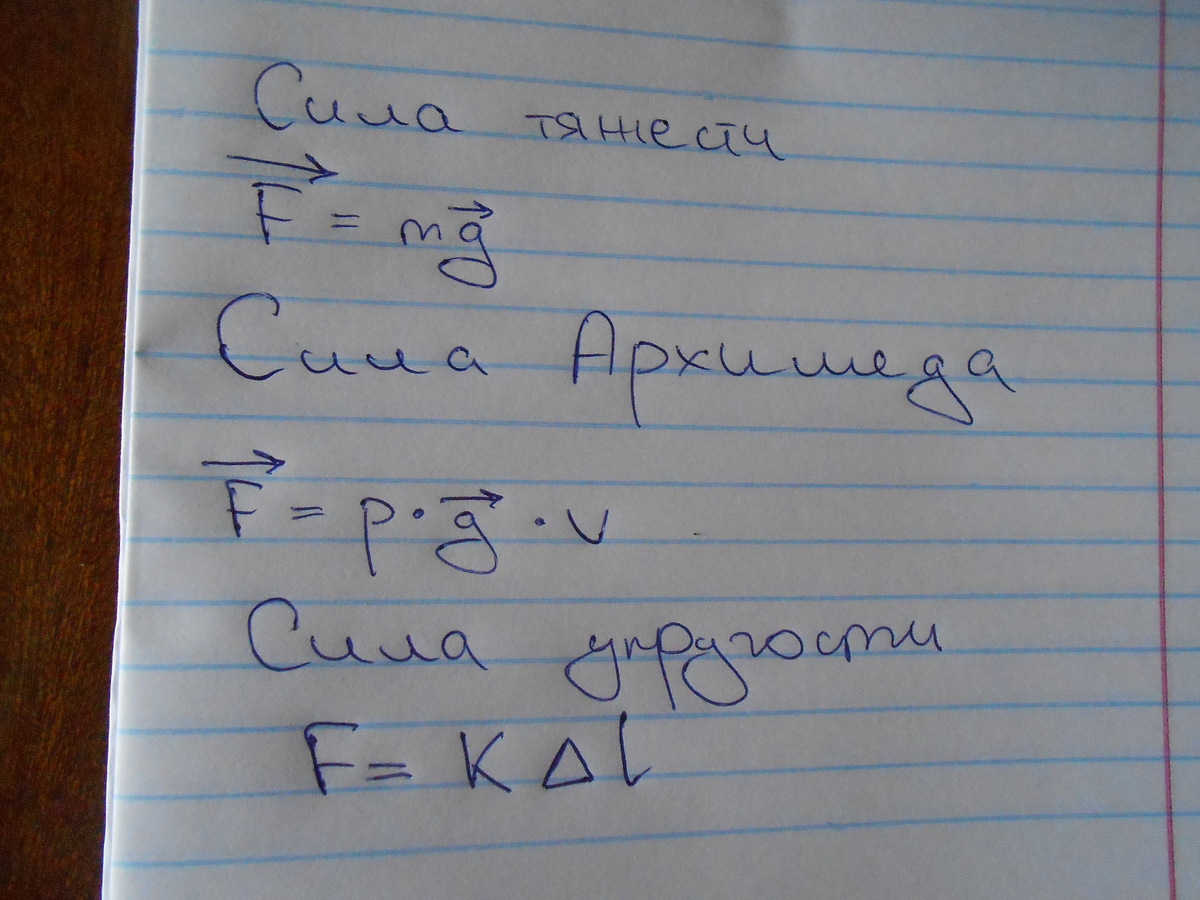 Сила тяжести
F⃗ = mg⃗
Сила Архимеда
F⃗ = p · g⃗ · v
Сила упругости
F = K Δ l